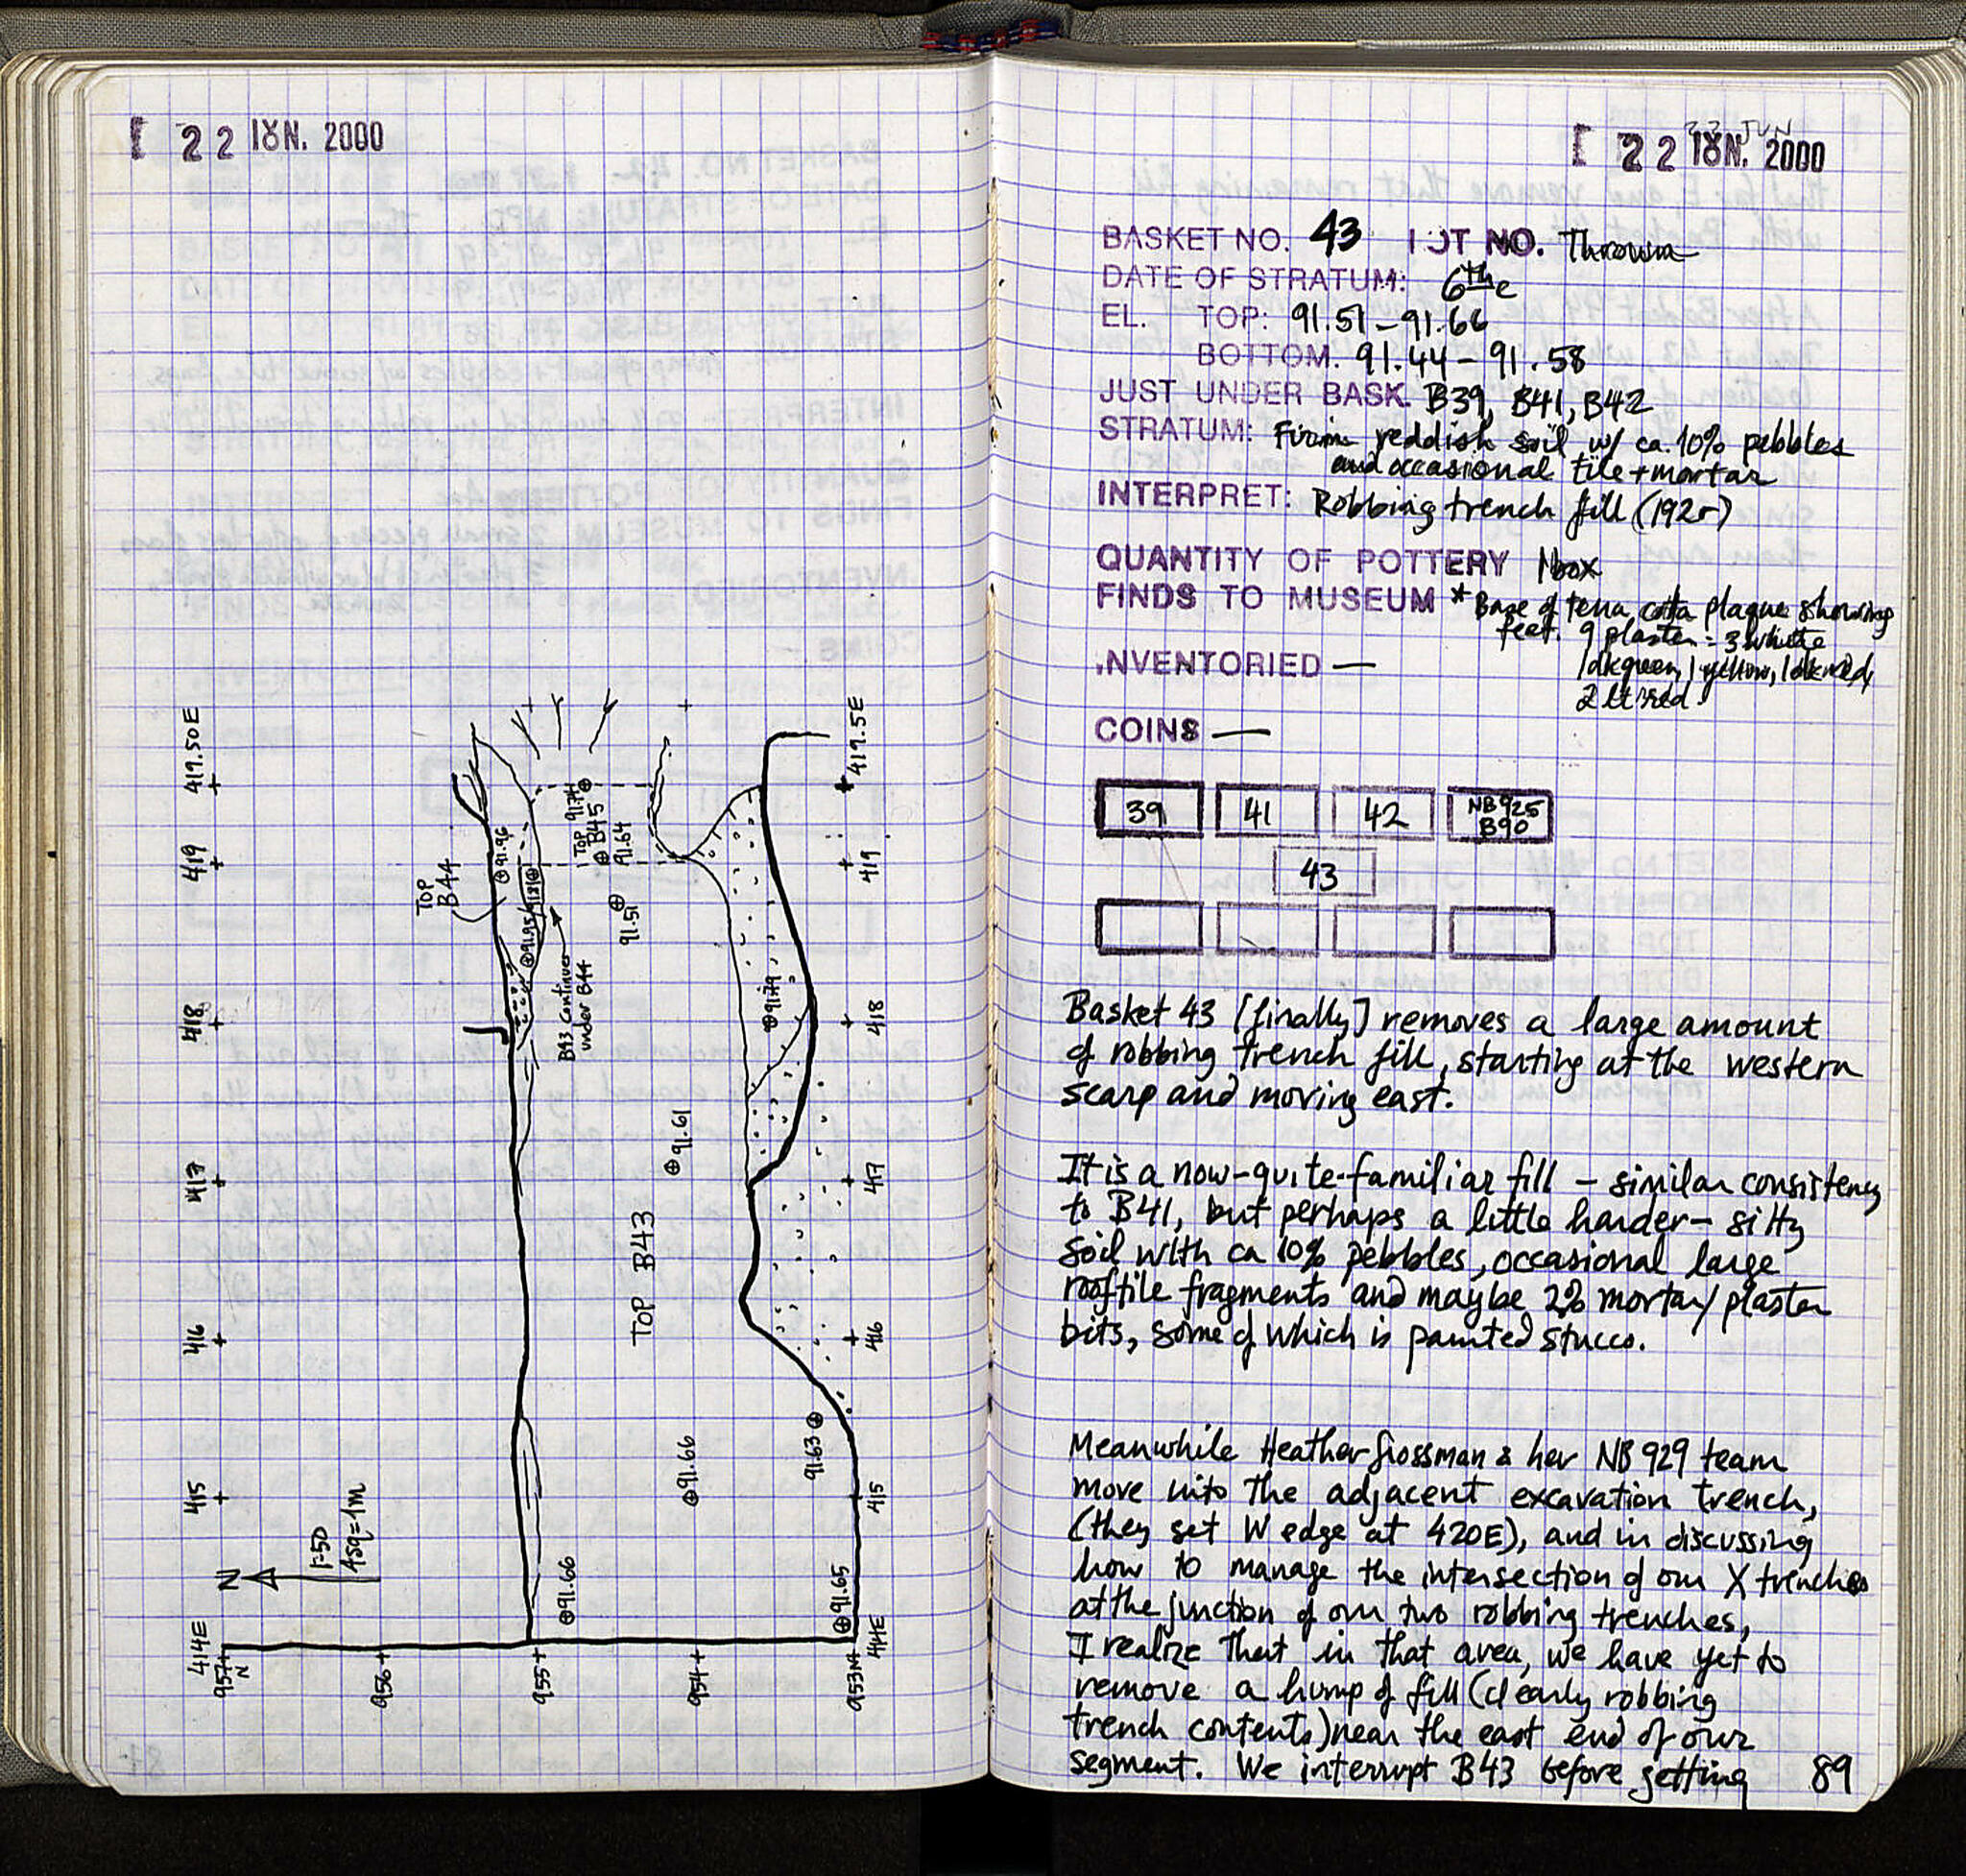 22 ΙΟΥΝ. 2000
419.50E
419
418
417
416
415
414E
TOP
B44
⊕91.96
⊕91.95
TOP
B45
⊕91.64
⊕91.51
B43 continues
under B44
⊕91.79
⊕91.61
TOP B43
⊕91.66
91.63⊕
⊕91.66
⊕91.65
N
1:50
4sq=1m
957
N
956
955
954
953N
419.5E
419
418
417
416
415
414E
22 JUN
22 ΙΟΥΝ. 2000
BASKET NO. 43 LOT NO. Thrown
DATE OF STRATUM: 6th c
EL. TOP: 91.51-91.66
BOTTOM. 91.44-91.58
JUST UNDER BASK. B39, B41, B42
STRATUM: Firm reddish soil w/ ca. 10% pebbles
and occasional tile + mortar
INTERPRET: Robbing trench fill (192r)
QUANTITY OF POTTERY 1 box
FINDS TO MUSEUM * Base of terra cotta plaque showing
feet. 9 plaster: 3 white
1 dk green, 1 yellow, 1 dk red,
2 lt red.
INVENTORIED —
COINS —
39 41 42 NB925
B90
43
Basket 43 [finally] removes a large amount
of robbing trench fill, starting at the western
scarp and moving east.
It is a now-quite-familiar fill - similar consistency
to B41, but perhaps a little harder - silty
soil with ca 10% pebbles, occasional large
rooftile fragments and maybe 2% mortar/plaster
bits, some of which is painted stucco.
Meanwhile Heather Grossman & her NB 929 team
move into the adjacent excavation trench,
(they set W edge at 420E), and in discussing
how to manage the intersection of our X trenches
at the junction of our two robbing trenches,
I realize that in that area, we have yet to
remove a hump of fill (clearly robbing
trench contents) near the east end of our
segment. We interrupt B43 before getting
89